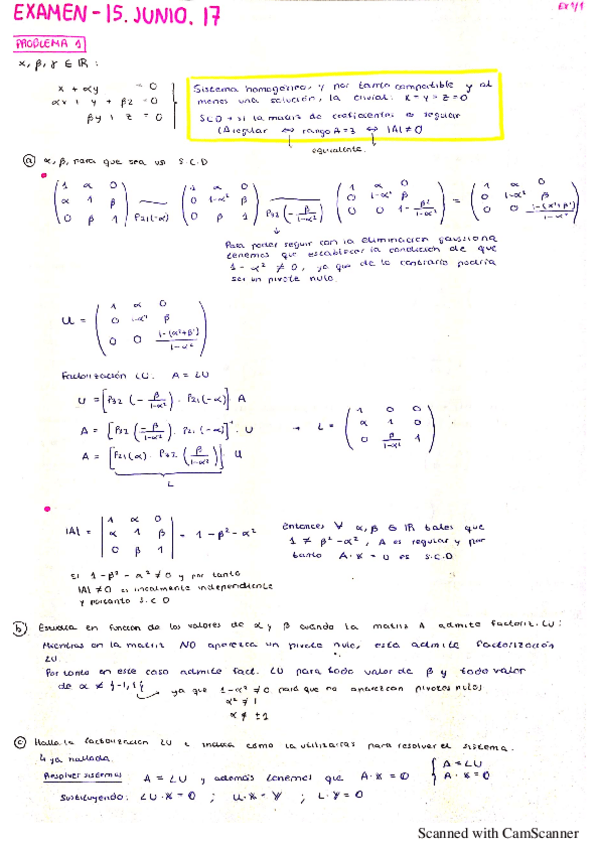 EXAMEN - 15. JUNIO. 17
EX 1/1
PROBLEMA 1
x, β, γ ∈ ℝ :
x + αy = 0
αx + y + βz = 0
βy + z = 0
Sistema homogéneo, y por tanto compatible y al
menos una solución, la trivial: x = y = z = 0
SCD → si la matriz de coeficientes es regular
(A regular ⇔ rango A = 3 ⇔ |A| ≠ 0
equivalente.
a) α, β, para que sea un S.C.D
( 1 α 0 ; α 1 β ; 0 β 1 ) P21(-α) ( 1 α 0 ; 0 1-α² β ; 0 β 1 ) P32(-β/(1-α²)) ( 1 α 0 ; 0 1-α² β ; 0 0 1-β²/(1-α²) ) = ( 1 α 0 ; 0 1-α² β ; 0 0 (1-(α²+β²))/(1-α²) )
Para poder seguir con la eliminación gaussiana
tenemos que establecer la condición de que
1-α² ≠ 0, ya que de lo contrario podría
ser un pivote nulo.
U = ( 1 α 0 ; 0 1-α² β ; 0 0 (1-(α²+β²))/(1-α²) )
Factorización LU. A = LU
U = [P32(-β/(1-α²)) · P21(-α)] A
A = [P32(-β/(1-α²)) · P21(-α)]⁻¹ · U → L = ( 1 0 0 ; α 1 0 ; 0 β/(1-α²) 1 )
A = [P21(α) · P32(β/(1-α²))] · U
L
|A| = | 1 α 0 ; α 1 β ; 0 β 1 | = 1-β²-α²
Entonces ∀ α, β ∈ ℝ tales que
1 ≠ β²-α², A es regular y por
tanto A·x = 0 es S.C.D
si 1-β²-α² ≠ 0 y por tanto
|A| ≠ 0 es linealmente independiente
y por tanto S.C.D
b) Estudia en función de los valores de α y β cuando la matriz A admite factoriz. LU:
Mientras en la matriz NO aparezca un pivote nulo, esta admite factorización
LU.
Por tanto en este caso admite fact. LU para todo valor de β y todo valor
de α ≠ {-1,1} ya que 1-α² ≠ 0 para que no aparezcan pivotes nulos
α² ≠ 1
α ≠ ±1
c) Halla la factorización LU e indica cómo la utilizarías para resolver el sistema.
↳ ya hallada.
Resolver sistemas A = LU y además tenemos que A·x = 0 { A = LU ; A·x = 0
Sustituyendo: LU·x = 0 ; U·x = y ; L·y = 0
Scanned with CamScanner